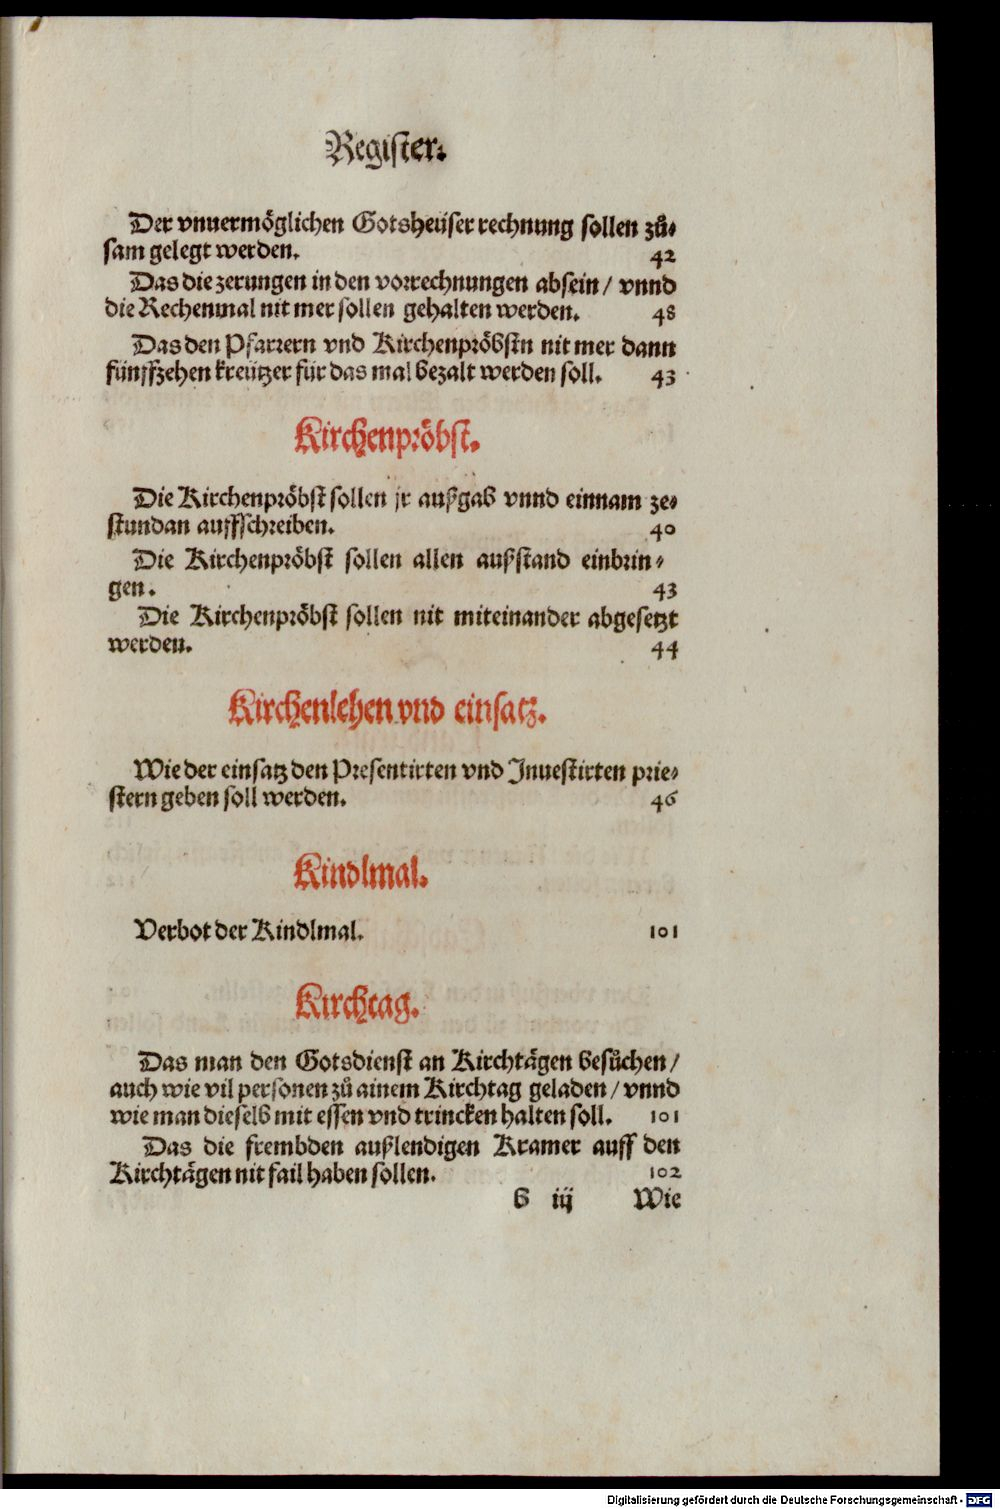 Register.
Der vnuermöglichen Gotsheüser rechnung sollen zů⸗
sam gelegt werden. 42
Das die zerungen in den vorrechnungen absein / vnnd
die Rechenmal nit mer sollen gehalten werden. 48
Das den Pfarrern vnd Kirchenpröbstn nit mer dann
fünffzehen kreützer für das mal bezalt werden soll. 43
Kirchenpröbst.
Die Kirchenpröbst sollen jr außgab vnnd einnam ze⸗
stundan auffschreiben. 40
Die Kirchenpröbst sollen allen außstand einbrin⸗
gen. 43
Die Kirchenpröbst sollen nit miteinander abgesetzt
werden. 44
Kirchenlehen vnd einsatz.
Wie der einsatz den Presentirten vnd Inuestirten prie⸗
stern geben soll werden. 46
Kindlmal.
Verbot der Kindlmal. 101
Kirchtag.
Das man den Gotsdienst an Kirchtägen besůchen /
auch wie vil personen zů ainem Kirchtag geladen / vnnd
wie man dieselb mit essen vnd trincken halten soll. 101
Das die frembden außlendigen Kramer auff den
Kirchtägen nit fail haben sollen. 102
b iij Wie
Digitalisierung gefördert durch die Deutsche Forschungsgemeinschaft - DFG